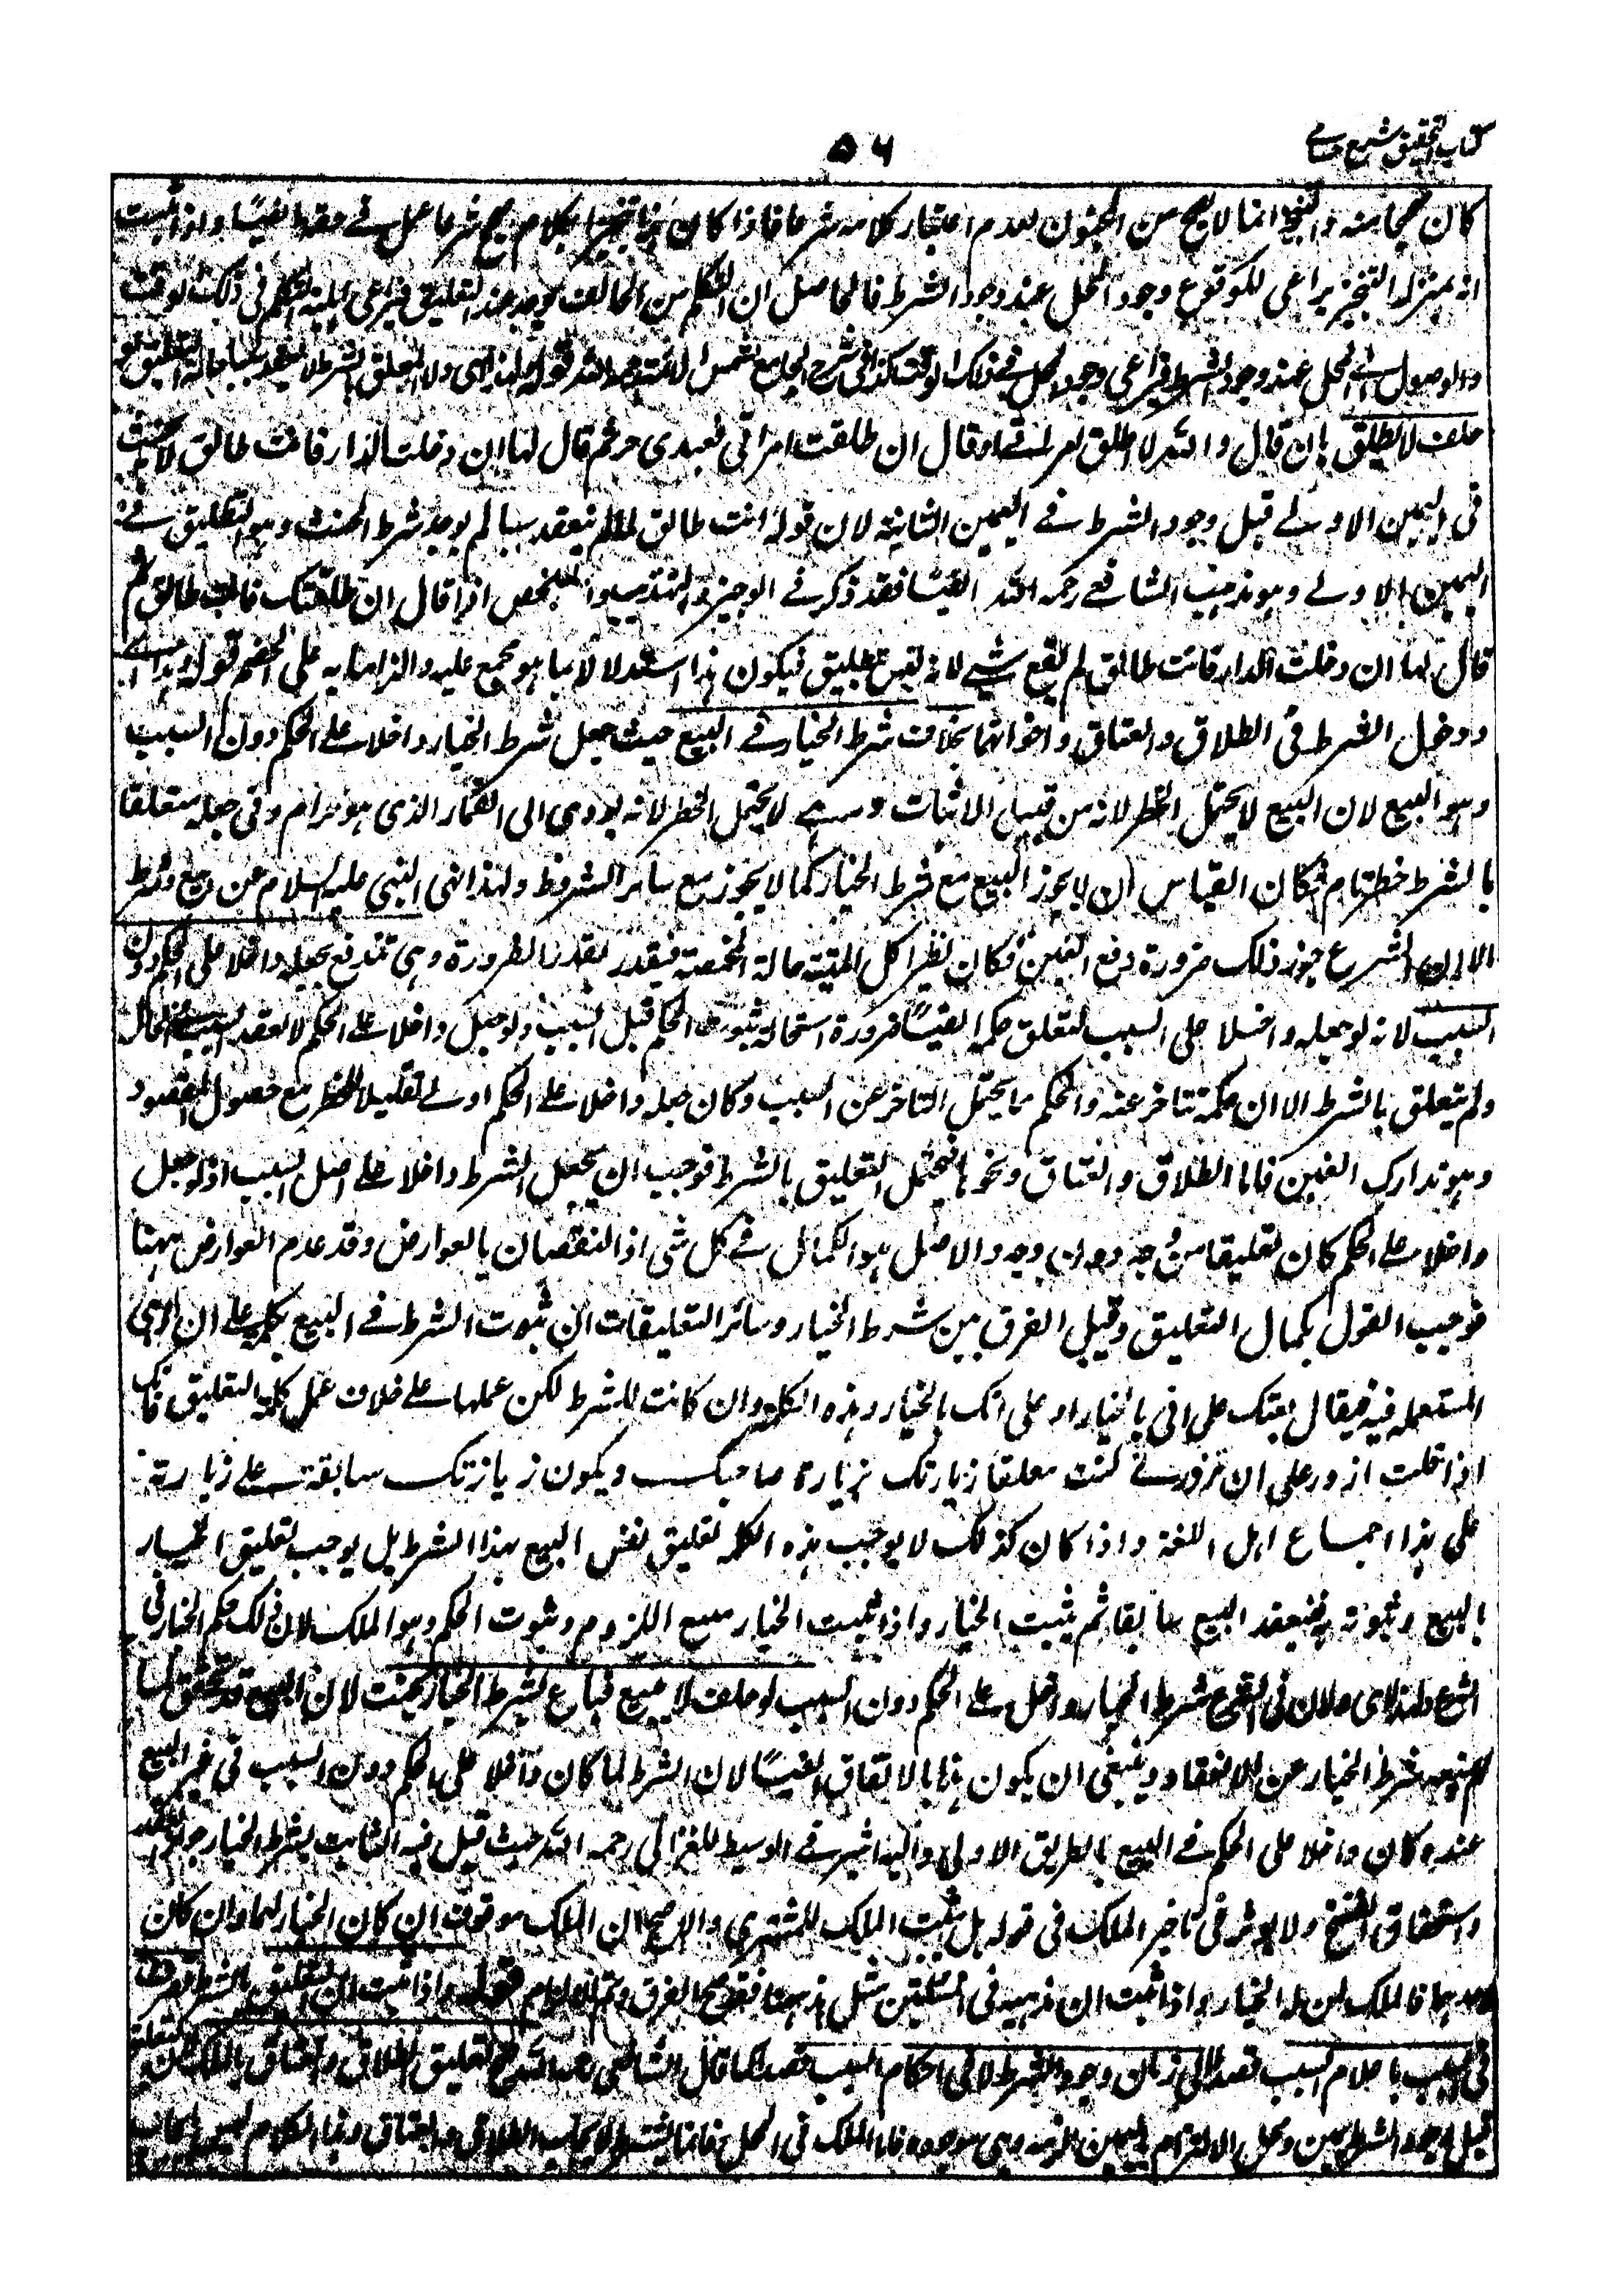 كتاب التحقيق شرح حسامی
۵۶
كان صحيحا منه والتنجيز انما لا يصح من المجنون لعدم اعتبار كلامه شرعا فاذا كان هذا تنجيزا بكلام صحيح شرعا عمل فے حقه ايضًا واذا ثبت
انه بمنزلة التنجيز يراعى للوقوع وجود المحل عند وجود الشرط فالحاصل ان التكلم من الحالف يوجد عند التعليق فيراعى اهلية التكلم فى ذلك الوقت
والوصول الے المحل عند وجود الشرط فيراعى وجود المحل فے ذلك الوقت كذا فى شرح الجامع لشمس الائمة رحمه الله قوله ولهذا اى ولان التعليق بالشرط لا ينعقد سببا حالة التعليق لو
حلف لا يطلق بان قال والله لا اطلق امرأتے او قال ان طلقت امرأتى فعبدى حر ثم قال لها ان دخلت الدار فانت طالق لا يحنث
فى اليمين الاولے قبل وجود الشرط فے اليمين الثانية لان قوله انت طالق لما لم ينعقد سببا لم يوجد شرط الحنث وهو التطليق فے
اليمين الاولے وهو مذهب الشافعے رحمه الله ايضًا فقد ذكر فے الوجيز والتهذيب والملخص اذا قال ان طلقتك فانت طالق ثم
قال لها ان دخلت الدار فانت طالق لم يقع شے لانه ليس بتطليق فيكون هذا استدلالا بما هو مجمع عليه والزاما به على الخصم قوله وهذا اے
دخول الشرط فى الطلاق والعتاق واخواتهما بخلاف شرط الخيار فے البيع حيث جعل شرط الخيار داخلا على الحكم دون السبب
وهو البيع لان البيع لا يحتمل الخطر لانه من قبيل الاثبات وهے لا يحتمل الخطر لانه يودى الى القمار الذى هو حرام وفى جعله متعلقا
بالشرط خطر تام فكان القياس ان لا يجوز البيع مع شرط الخيار كما لا يجوز مع سائر الشروط ولهذا نهى النبى عليه السلام عن بيع وشرط
الا ان الشرع جوز ذلك ضرورة دفع الغبن فكان نظير اكل الميتة حالة المخمصة فيتقدر بقدر الضرورة وهى تندفع بجعله داخلا على الحكم دون
السبب لانه لو جعله داخلا على السبب لتعلق حكمه ايضًا ضرورة استحالة ثبوت الحكم قبل السبب ولو جعل داخلا على الحكم لانعقد السبب فے الحال
ولم يتعلق بالشرط الا ان حكمه تتاخر عنه والحكم مما يحتمل التاخر عن السبب وكان جعله داخلا على الحكم اولے تقليلا للخطر مع حصول المقصود
وهو تدارك الغبن فاما الطلاق والعتاق ونحوهما فيحتمل التعليق بالشرط فوجب ان يجعل الشرط داخلا على اصل السبب اذ لو جعل
داخلا على الحكم كان تعليقا من وجه دون وجه والاصل هو الكمال فے كل شى اذ النقصان بالعوارض وقد عدم العوارض ههنا
فوجب القول بكمال التعليق وقيل الفرق بين شرط الخيار وسائر التعليقات ان ثبوت الشرط فے البيع بكلمة على ان اى هى
المستعملة فيه فيقال بعتك على انى بالخيار او على انك بالخيار وهذه الكلمة وان كانت للشرط لكن عملها على خلاف عمل كلمة التعليق فانك
اذا قلت ازورك على ان تزورنے كنت معلقا زيارتك بزيارة صاحبك ويكون زيارتك سابقة على زيارته
على هذا اجماع اهل اللغة واذا كان كذلك لا يوجب هذه الكلمة تعليق نفس البيع بهذا الشرط بل يوجب تعليق الخيار
بالبيع وثبوته به فينعقد البيع سابقا ثم يثبت الخيار واذا ثبت الخيار يمنع اللزوم وثبوت الحكم وهو الملك لان ذلك حكم الخيار فى
الشرع ولهذا اى ولان فى البيع شرط الخيار داخل على الحكم دون السبب لو حلف لا يبيع فباع بشرط الخيار يحنث لان البيع قد تحقق لما
لم يمنعه شرط الخيار عن الانعقاد وينبغى ان يكون هذا بالاتفاق ايضًا لان الشرط لما كان داخلا على الحكم دون السبب فى غير البيع
عنده كان داخلا على الحكم فے البيع بالطريق الاولى واليه اشير فے الوسيط للغزالى رحمه الله حيث قيل فيه الثابت بشرط الخيار جواز العقد
واستحقاق الفسخ ولا يوثر فى تاخير الملك فى قول بل يثبت الملك للمشترى والاصح ان الملك موقوف ان كان الخيار لهما وان كان
لاحدهما فالملك لمن له الخيار واذا ثبت ان مذهبه فى المسئلتين مثل مذهبنا فقد صح الفرق وتم الالزام قوله واذا ثبت ان التعليق بالشرط تصرف
فى السبب باعدام السبب قصدا الى زمان وجود الشرط لا فى احكام السبب قصدا كما قال الشافعى رحمه الله صح تعليق الطلاق والعتاق بالملك لان المتعلق
قبل وجود الشرط يمين ومحل الالتزام اليمين ذمته وهى موجودة فاما الملك فى المحل فانما يشترط لايجاب الطلاق والعتاق وهذا الكلام ليس بايجاب